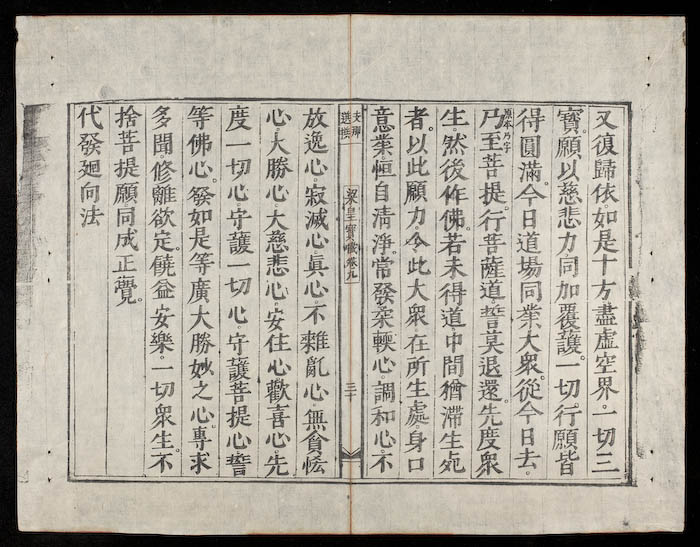 又復歸依。如是十方盡虛空界。一切三
寶。願以慈悲力同加覆護。一切行願皆
得圓滿。今日道場同業大衆。從今日去。
原本乃字
乃至菩提。行菩薩道。誓莫退還。先度衆
生。然後作佛。若未得道中間。猶滯生死
者。以此願力。令此大衆。在所生處。身口
意業。恒自清淨。常發柔輭心。調和心。不
支那
選𢰅
梁皇寶懺卷九
三十
放逸心。寂滅心。眞心。不雜亂心。無貪悋
心。大勝心。大慈悲心。安住心。歡喜心。先
度一切心。守護一切心。守護菩提心。誓
等佛心。發如是等廣大勝妙之心。專求
多聞。修離欲定。饒益安樂一切衆生。不
捨菩提願。同成正覺。
代發廻向法